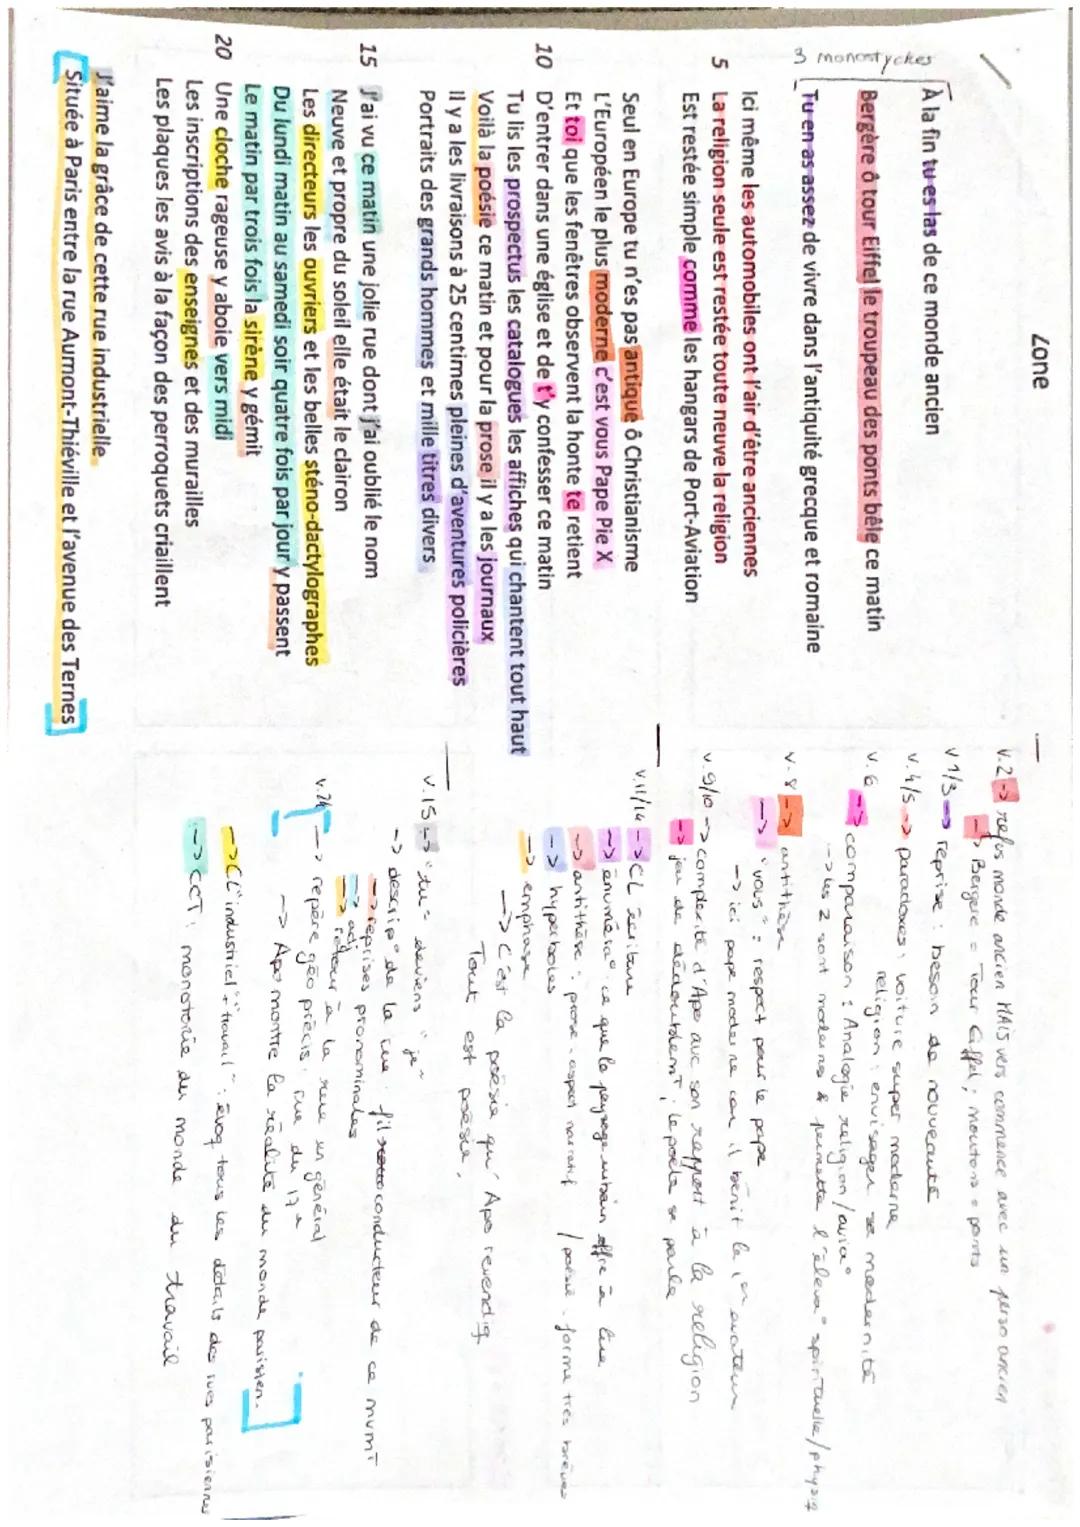 Zone
3 monostyches
À la fin tu es las de ce monde ancien
Bergère ô tour Eiffel le troupeau des ponts bêle ce matin
Tu en as assez de vivre dans l'antiquité grecque et romaine
Ici même les automobiles ont l'air d'être anciennes
5 La religion seule est restée toute neuve la religion
Est restée simple comme les hangars de Port-Aviation
Seul en Europe tu n'es pas antique ô Christianisme
L'Européen le plus moderne c'est vous Pape Pie X
Et toi que les fenêtres observent la honte te retient
10 D'entrer dans une église et de t'y confesser ce matin
Tu lis les prospectus les catalogues les affiches qui chantent tout haut
Voilà la poésie ce matin et pour la prose il y a les journaux
Il y a les livraisons à 25 centimes pleines d'aventures policières
Portraits des grands hommes et mille titres divers
15 J'ai vu ce matin une jolie rue dont j'ai oublié le nom
Neuve et propre du soleil elle était le clairon
Les directeurs les ouvriers et les belles sténo-dactylographes
Du lundi matin au samedi soir quatre fois par jour y passent
Le matin par trois fois la sirène y gémit
20 Une cloche rageuse y aboie vers midi
Les inscriptions des enseignes et des murailles
Les plaques les avis à la façon des perroquets criaillent
J'aime la grâce de cette rue industrielle
Située à Paris entre la rue Aumont-Thiéville et l'avenue des Ternes
v.2 -> refus monde ancien MAIS vers commence avec un perso ancien
-> Bergère = Tour Eiffel ; moutons = ponts
v1/3 -> reprise : besoin de nouveauté
v.4/5 -> paradoxes : voiture super moderne
religion : envisager sa modernité
v.6 -> comparaison : Analogie religion/avia°
-> les 2 sont modernes & permette l'éleva° spirituelle/physiq
v.8 -> antithèse
-> "vous" : respect pour le pape
-> ici pape moderne car il bénit la 1er avateur
v.9/10 -> complexité d'Apo avc son rapport à la religion
-> jeu de dédoublemT ; le poète se parle
v.11/14 -> CL écriture
-> énuméra° : ce que le paysage urbain offre à lire
-> antithèse : prose - aspect narratif / poésie - forme très brèves
-> hyperboles
-> emphase
-> C'est la poésie qu'Apo revendiq
Tout est poésie.
v.15 -> "tu" deviens "je"
-> descrip° de la rue : fil conducteur de ce mvmT
-> reprises pronominales
-> adj
-> retour à la rue en général
v.24 -> repère géo précis : rue du 17e
-> Apo montre la réalité du monde parisien.
-> CL "industriel + travail" : évoq tous les détails des rues parisiennes
-> CCT : monotonie du monde du travail